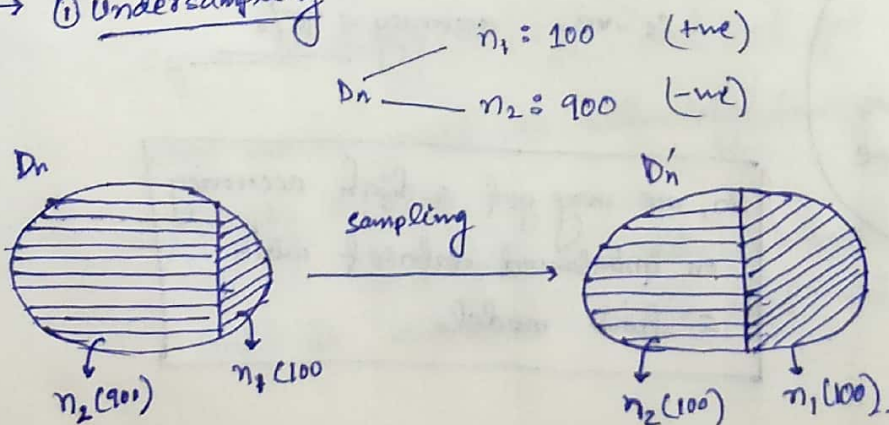 → ① Undersampling
n₁ : 100 (+ve)
Dn
n₂ : 900 (-ve)
Dn
sampling
D'n
n₂ (900)
n₁ (100
n₂ (100)
n₁ (100).